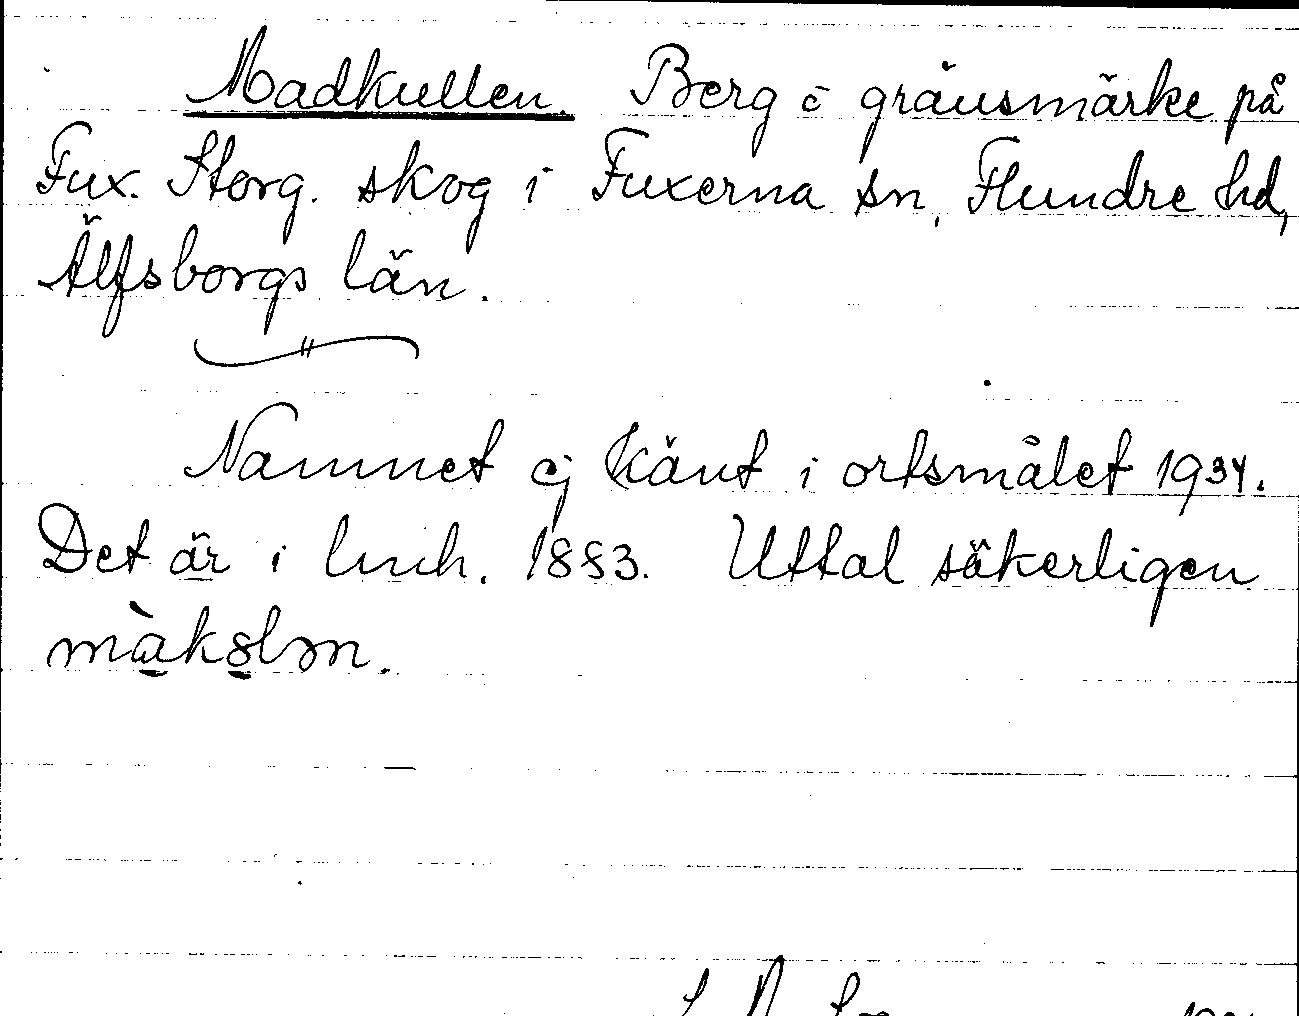 Madkullen. Berg o gränsmärke på
Fux. Storg. skog i Fuxerna sn, Flundre hd,
Älfsborgs län.
Namnet ej känt i ortsmålet 1934.
Det är i 1883. Uttal säkerligen
màkələn.